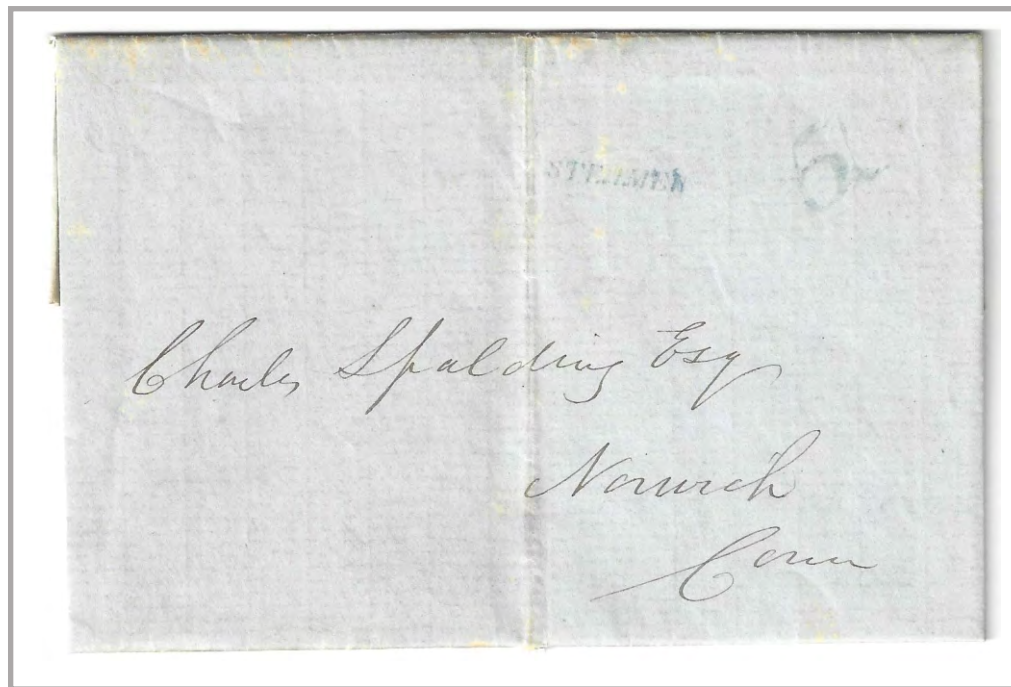 STEAMER 5
Charles Spalding Esq
Norwich
Conn